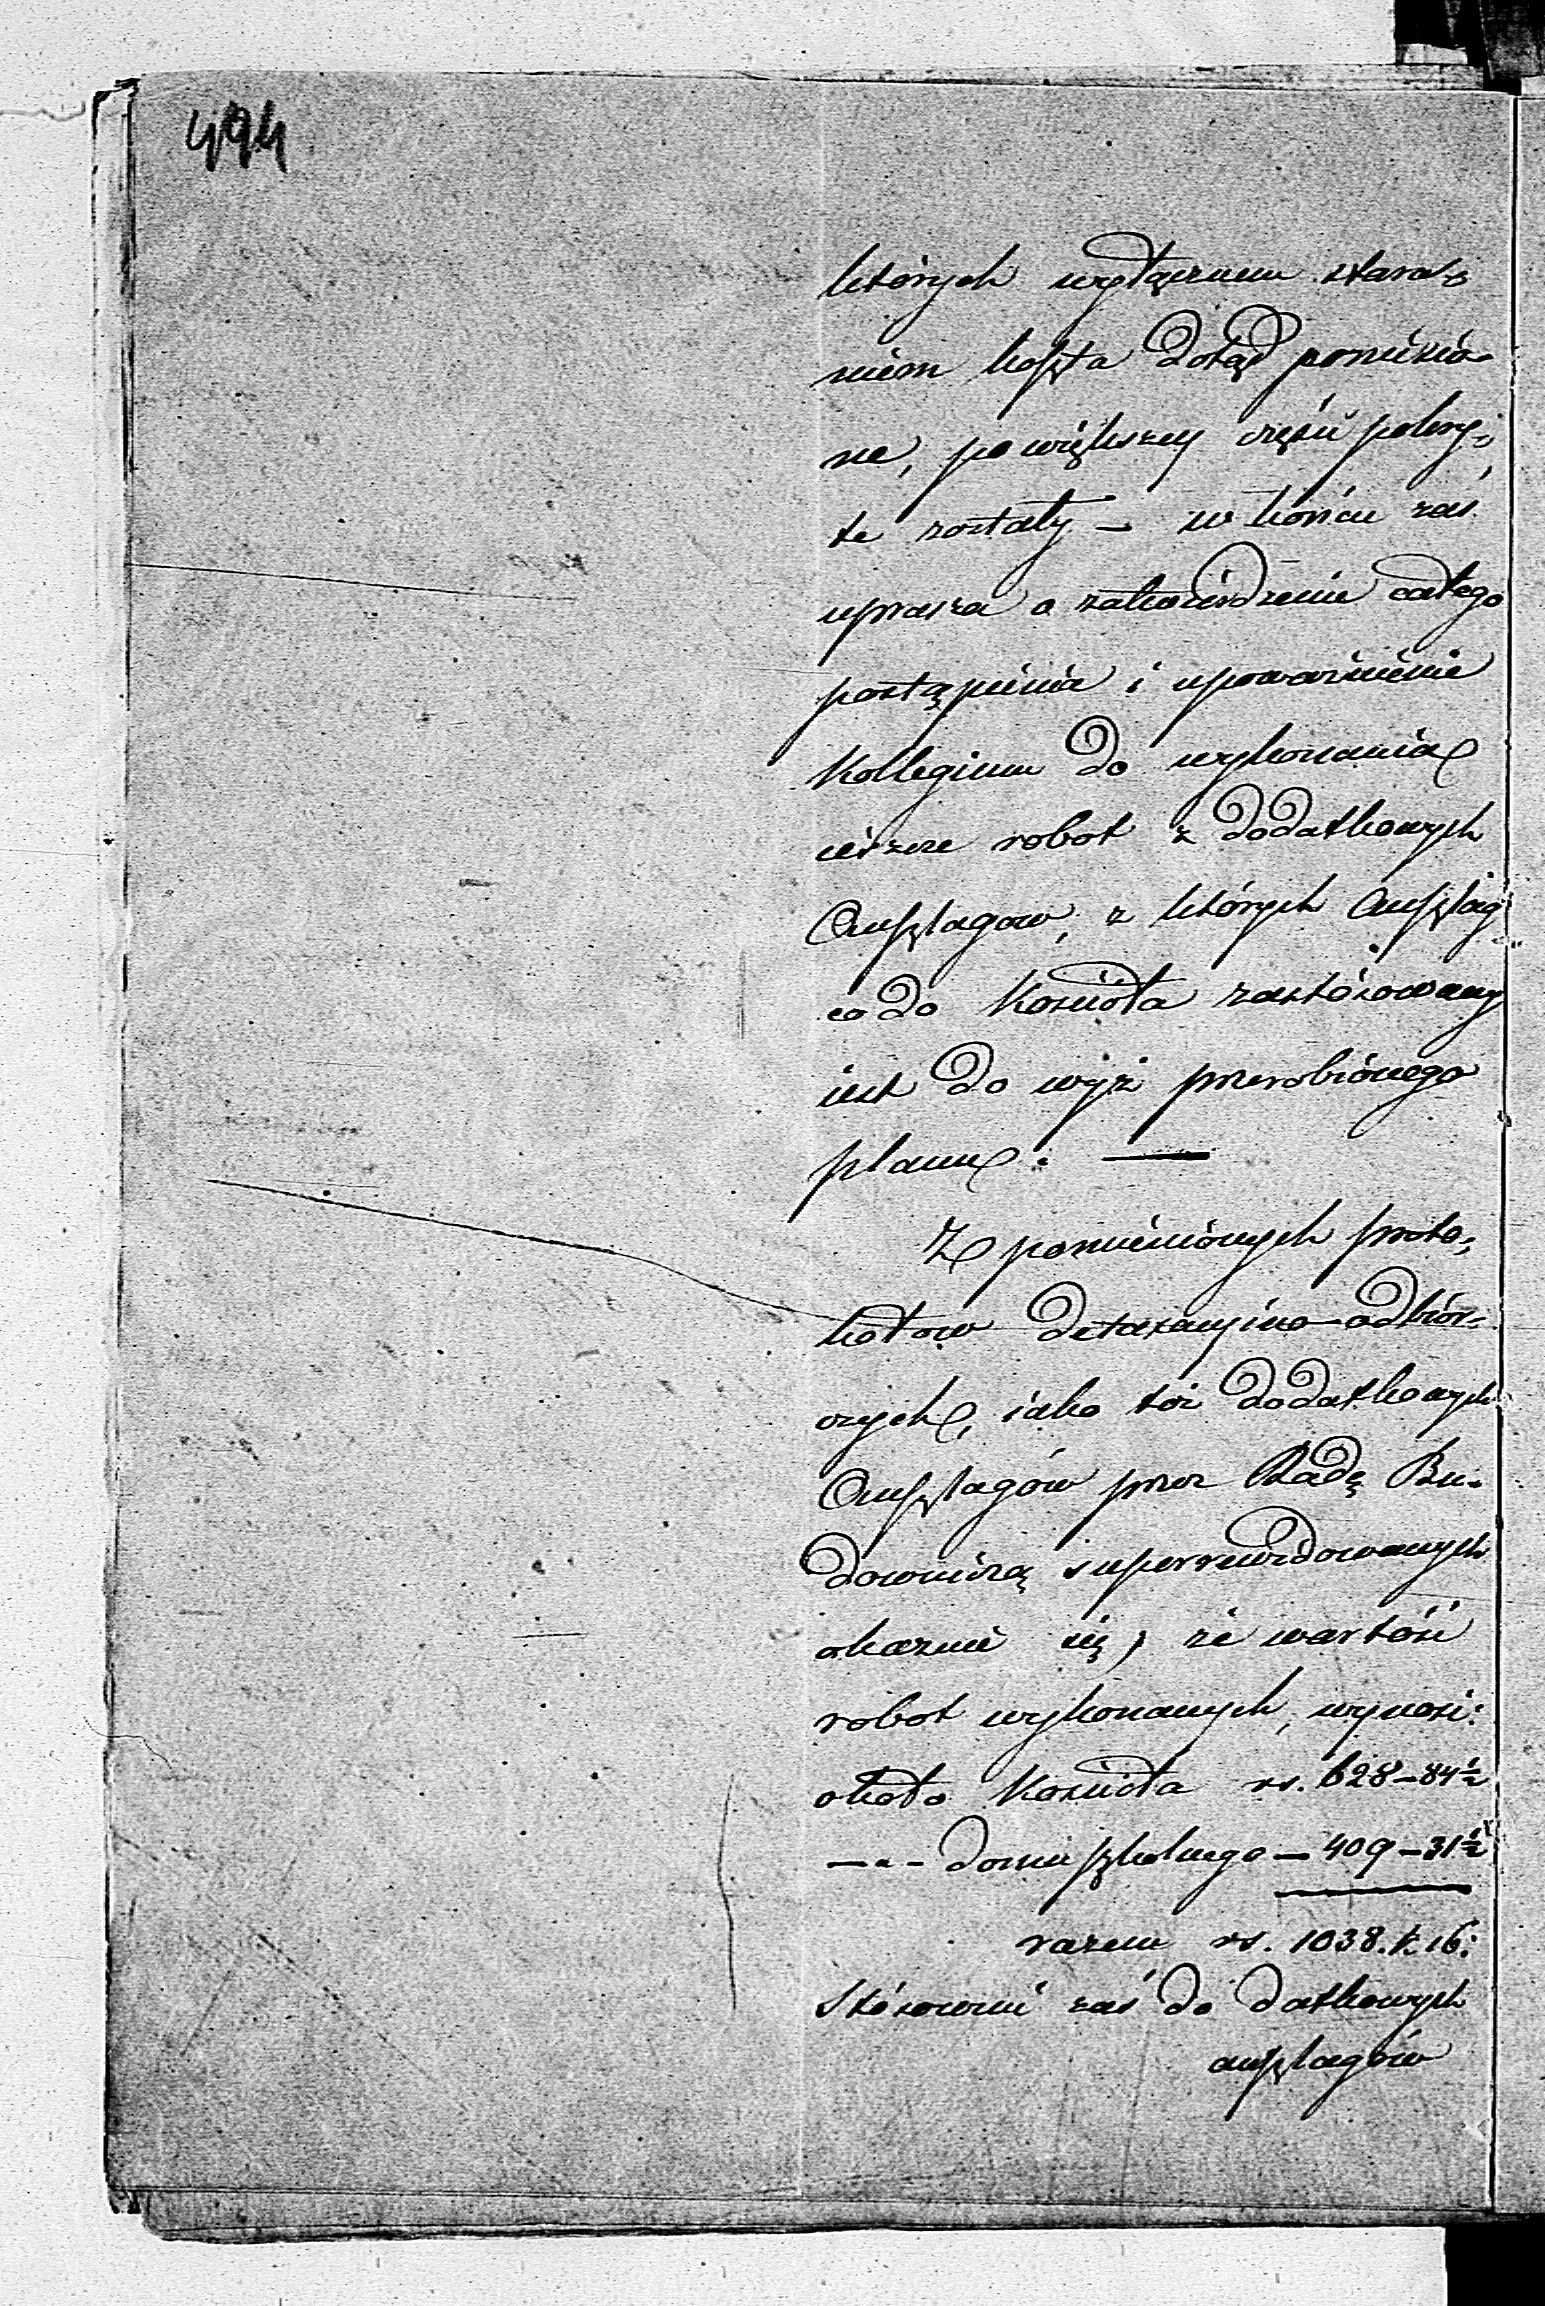 494
których wyłącznem stara-
niem koszta dotąd poniesio-
ne, po większey części pokry-
te zostały – w końcu zaś
uprasza o zatwierdzenie całego
postąpienia i upoważnienie
Kollegium do wykonania
ieszcze robot z dodatkowych
Anszlagow, z których Anszlag
co do Kościoła zastósowany
iest do wyż przerobionego
planu. —
Z pomienionych proto-
kołow detaxacyino-odbior-
czych, iako też dodatkowych
Anszlagów przez Radę Bu-
downiczą superrewidowanych
okazuie się, że wartość
robot wykonanych, wynosi:
około Kościoła rs. 628–84½
—„— domu szkolnego – 409–31½
razem rs. 1038. k. 16.
Stósownie zaś do datkowych
anszlagów